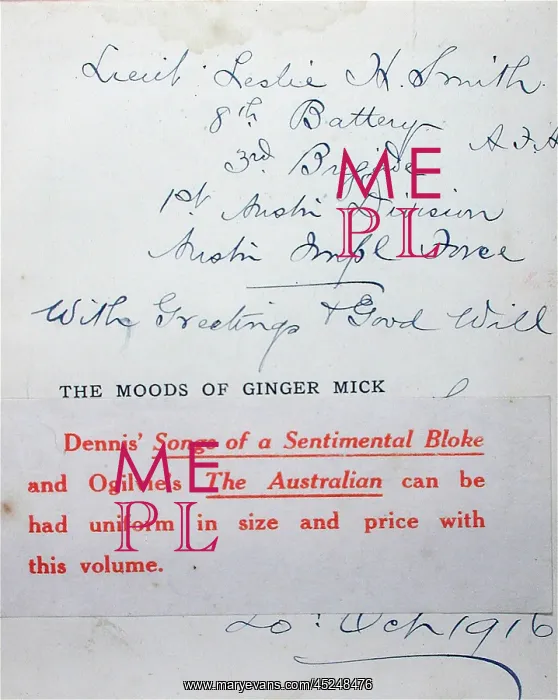 Lieut. Leslie H. Smith.
8th Battery
A.F.A
3rd Brigade
1st Austn Division
Austn Impl Force
With Greetings & Good Will
THE MOODS OF GINGER MICK
Dennis' Songs of a Sentimental Bloke
and Ogilvie's The Australian can be
had uniform in size and price with
this volume.
20: Oct 1916
ME
PL
ME
PL
www.maryevans.com/45248476